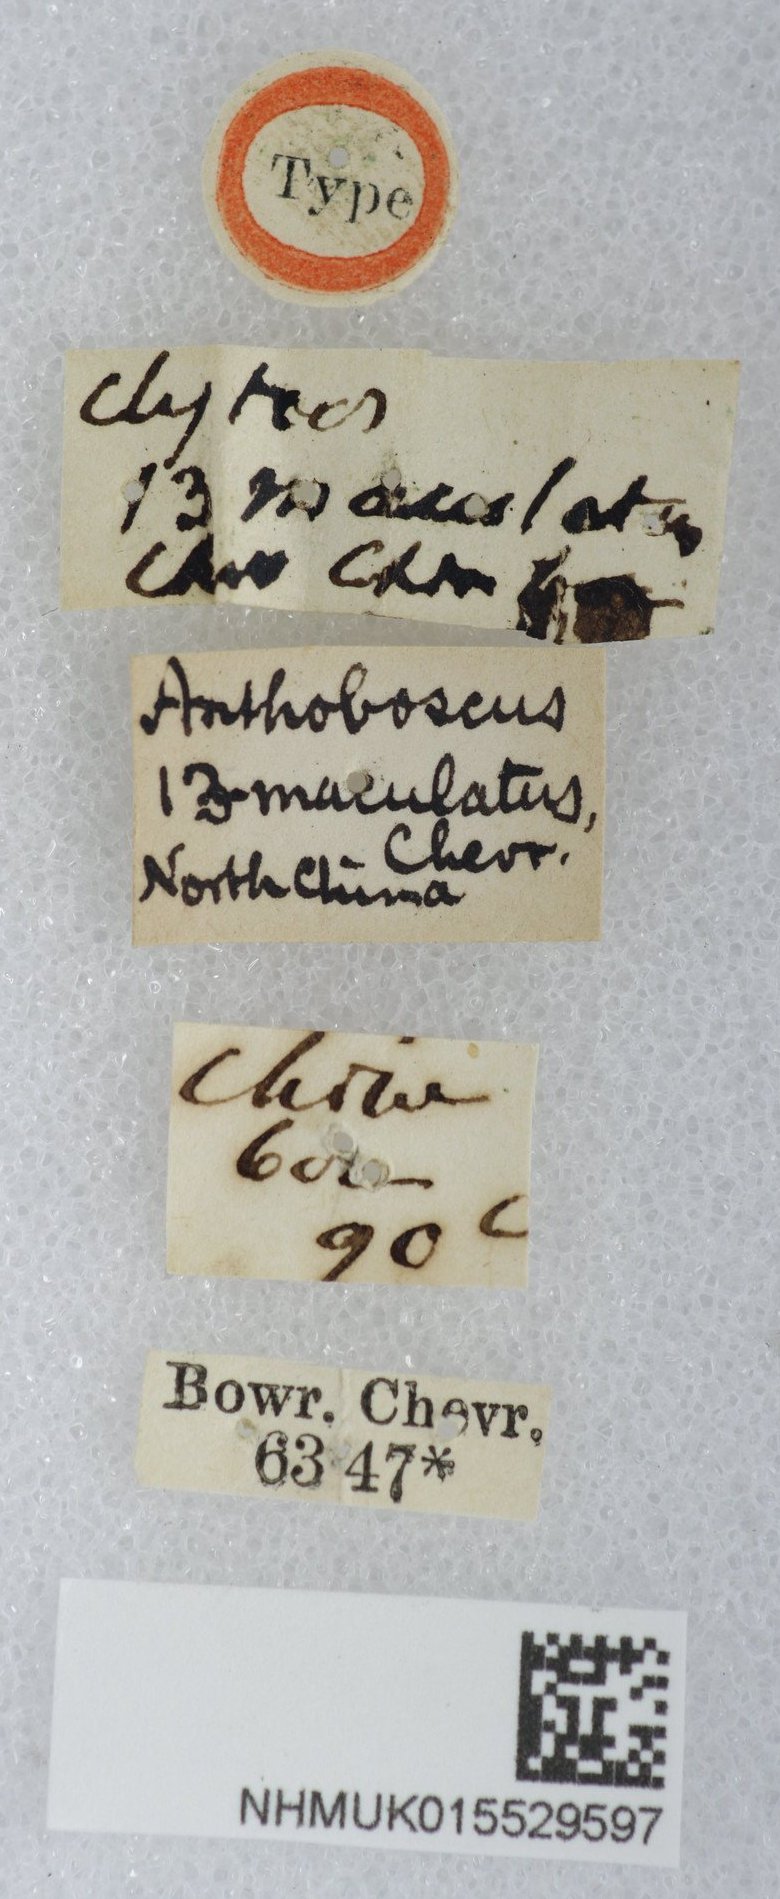 Type
Clytus
13 maculatus
Chev Chin
Anthoboscus
13-maculatus,
Chevr.
North China
Chine
90 C
Bowr. Chevr.
63 47*
NHMUK015529597